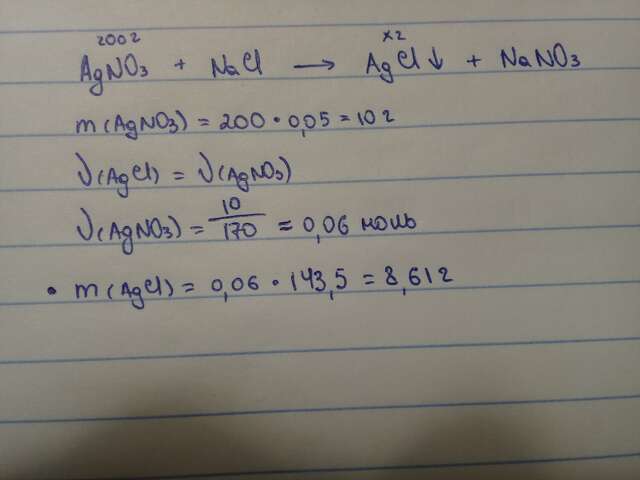 200г хг
AgNO₃ + NaCl → AgCl↓ + NaNO₃
m(AgNO₃) = 200 · 0,05 = 10г
ν(AgCl) = ν(AgNO₃)
ν(AgNO₃) = 10/170 = 0,06 моль
• m(AgCl) = 0,06 · 143,5 = 8,61г